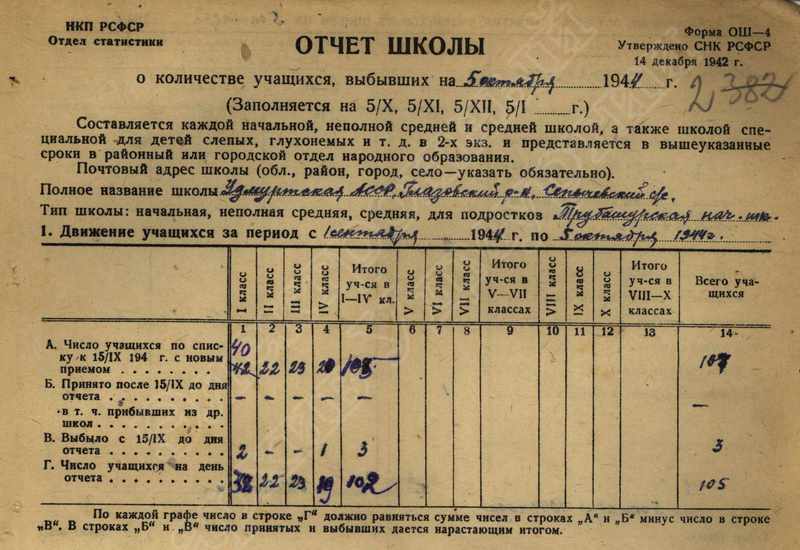 НКП РСФСР
Отдел статистики
Форма ОШ—4
Утверждено СНК РСФСР
14 декабря 1942 г.
ОТЧЕТ ШКОЛЫ
о количестве учащихся, выбывших на 5 октября 1944 г.
2, 382
(Заполняется на 5/X, 5/XI, 5/XII, 5/I г.)
Составляется каждой начальной, неполной средней и средней школой, а также школой спе-
циальной для детей слепых, глухонемых и т. д. в 2-х экз. и представляется в вышеуказанные
сроки в районный или городской отдел народного образования.
Почтовый адрес школы (обл., район, город, село—указать обязательно).
Полное название школы Удмуртская АССР, Глазовский р-н, Сепычевский с/с.
Тип школы: начальная, неполная средняя, средняя, для подростков Трубашурская нач. шк.
1. Движение учащихся за период с 1 сентября 1944 г. по 5 октября 1944 г.
I класс II класс III класс IV класс Итого уч-ся в I—IV кл. V класс VI класс VII класс Итого уч-ся в V—VII классах VIII класс IX класс X класс Итого уч-ся в VIII—X классах Всего уча-щихся
1 2 3 4 5 6 7 8 9 10 11 12 13 14
А. Число учащихся по спис- 40
ку к 15/IX 194 г. с новым
приемом . . . . . . . . 42 22 23 20 105 107
Б. Принято после 15/IX до дня
отчета . . . . . . . . . — — — — —
в т. ч. прибывших из др. —
школ . . . . . . . . . . .
В. Выбыло с 15/IX до дня
отчета . . . . . . . . . . 2 - - 1 3 3
Г. Число учащихся на день
отчета . . . . . . . . . . 38 22 23 19 102 105
По каждой графе число в строке „Г“ должно равняться сумме чисел в строках „А“ и „Б“ минус число в строке
„В“. В строках „Б“ и „В“ число принятых и выбывших дается нарастающим итогом.